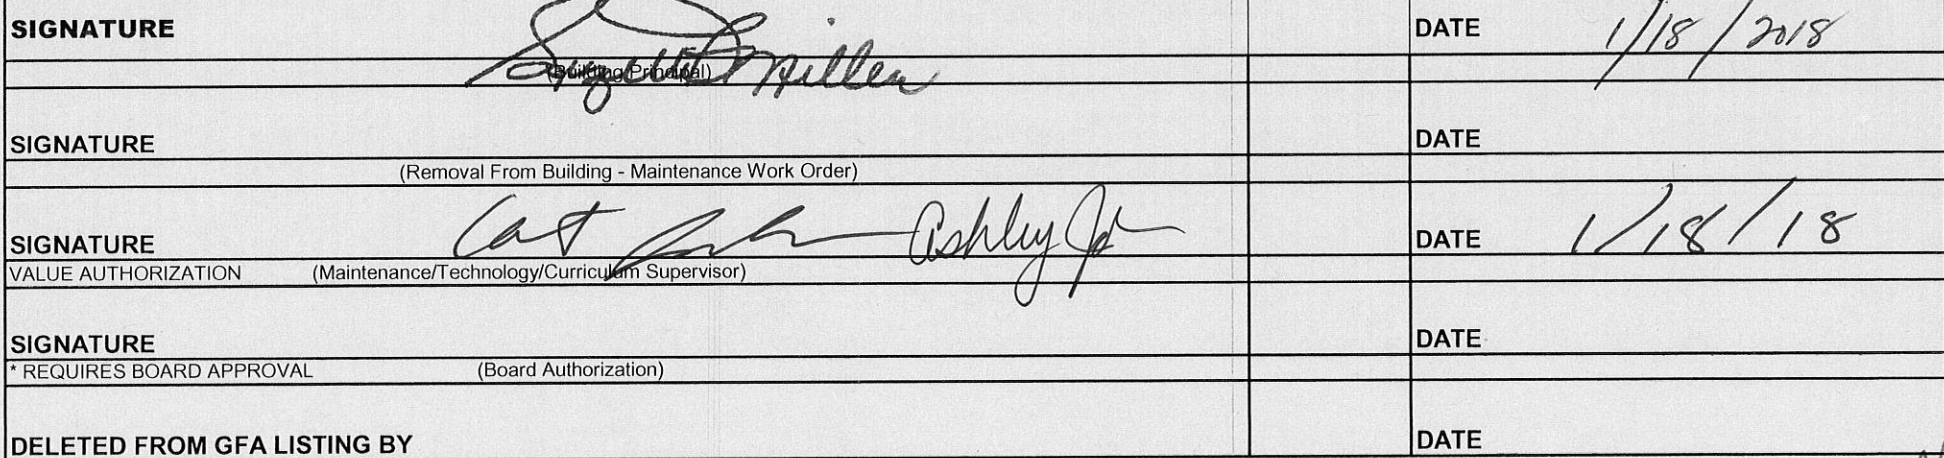 SIGNATURE DATE 1/18/2018
(Building Principal) Miller
SIGNATURE DATE
(Removal From Building - Maintenance Work Order)
SIGNATURE Ashley DATE 1/18/18
VALUE AUTHORIZATION (Maintenance/Technology/Curriculum Supervisor)
SIGNATURE DATE
* REQUIRES BOARD APPROVAL (Board Authorization)
DELETED FROM GFA LISTING BY DATE